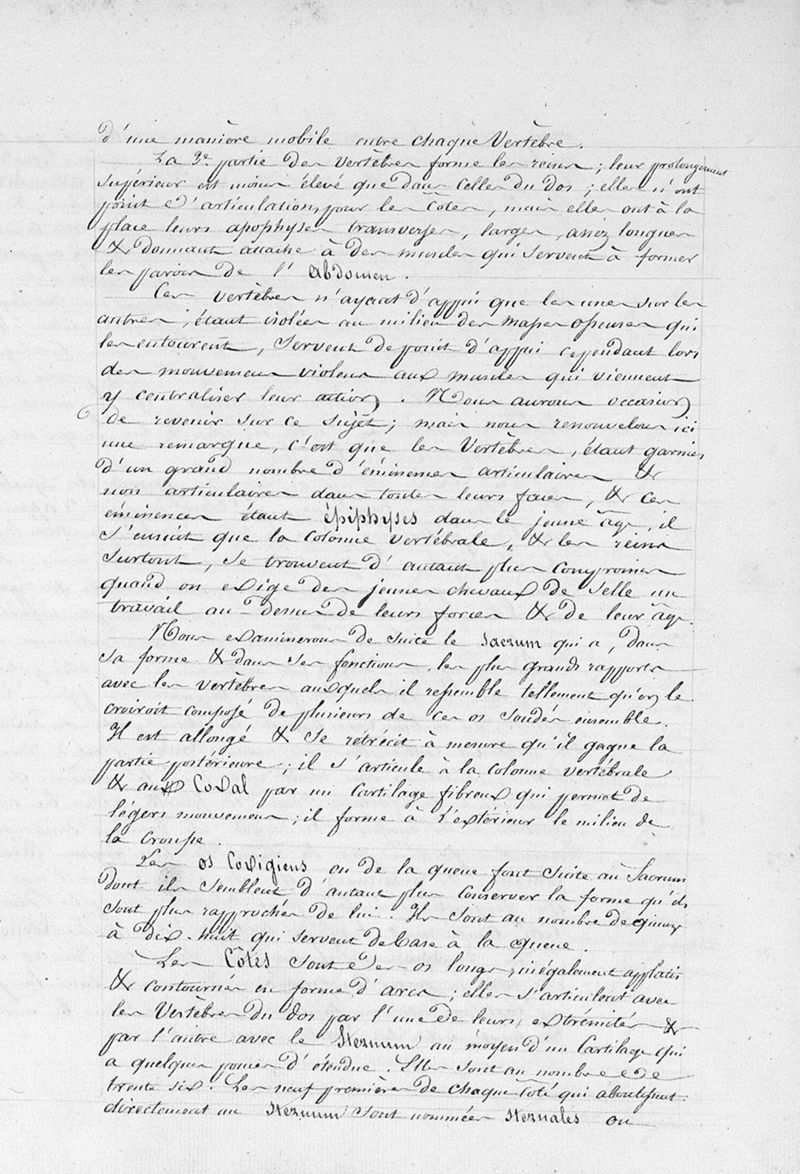 d'une manière mobile entre chaque Vertèbre.
La 3e partie des vertèbres forme les reins; leur prolongement
supérieur est moins élevé que dans celles du dos; elles n'ont
point d'articulations pour les côtes, mais elles ont à la
place leurs apophyses transverses, larges, assez longues
& donnant attache à des muscles qui servent à former
les parois de l'Abdomen.
Ces vertèbres n'ayant d'appui que les unes sur les
autres, étant isolées au milieu des masses osseuses qui
les entourent, servent de point d'appui cependant lors
des mouvemens violens aux muscles qui viennent
y centraliser leur action. Nous aurons occasion
de revenir sur ce sujet; mais nous renouvelons ici
une remarque, c'est que les Vertèbres, étant garnies
d'un grand nombre d'éminences articulaires &
non articulaires dans toutes leurs faces, & ces
éminences étant épiphyses dans le jeune âge, il
s'ensuit que la colonne vertébrale, & les reins
surtout, se trouvent d'autant plus compromis
quand on exige des jeunes chevaux de selle un
travail au-dessus de leurs forces & de leur âge.
Nous examinerons de suite le sacrum qui a, dans
sa forme & dans ses fonctions, les plus grands rapports
avec les vertèbres auxquels il ressemble tellement qu'on le
croiroit composé de plusieurs de ces os soudés ensemble.
Il est allongé & se rétrécit à mesure qu'il gagne la
partie postérieure; il s'articule à la colonne vertébrale
& aux Coxal par un Cartilage fibreux qui permet de
légers mouvemens; il forme à l'extérieur le milieu de
la croupe.
Les os Coxigiens ou de la queue font suite au Sacrum
dont ils semblent d'autant plus conserver la forme qu'ils
sont plus rapprochés de lui. Ils sont au nombre de quinze
à dix-huit qui servent de base à la queue.
Les Côtes sont des os longs, inégalement applatis
& contournés en forme d'arcs; elles s'articulent avec
les Vertèbres du dos par l'une de leurs extrémités &
par l'autre avec le Sternum au moyen d'un Cartilage qui
a quelques pouces d'étendue. Elles sont au nombre de
trente six. Les neuf premières de chaque côté qui aboutissent
directement au Sternum sont nommées sternales ou